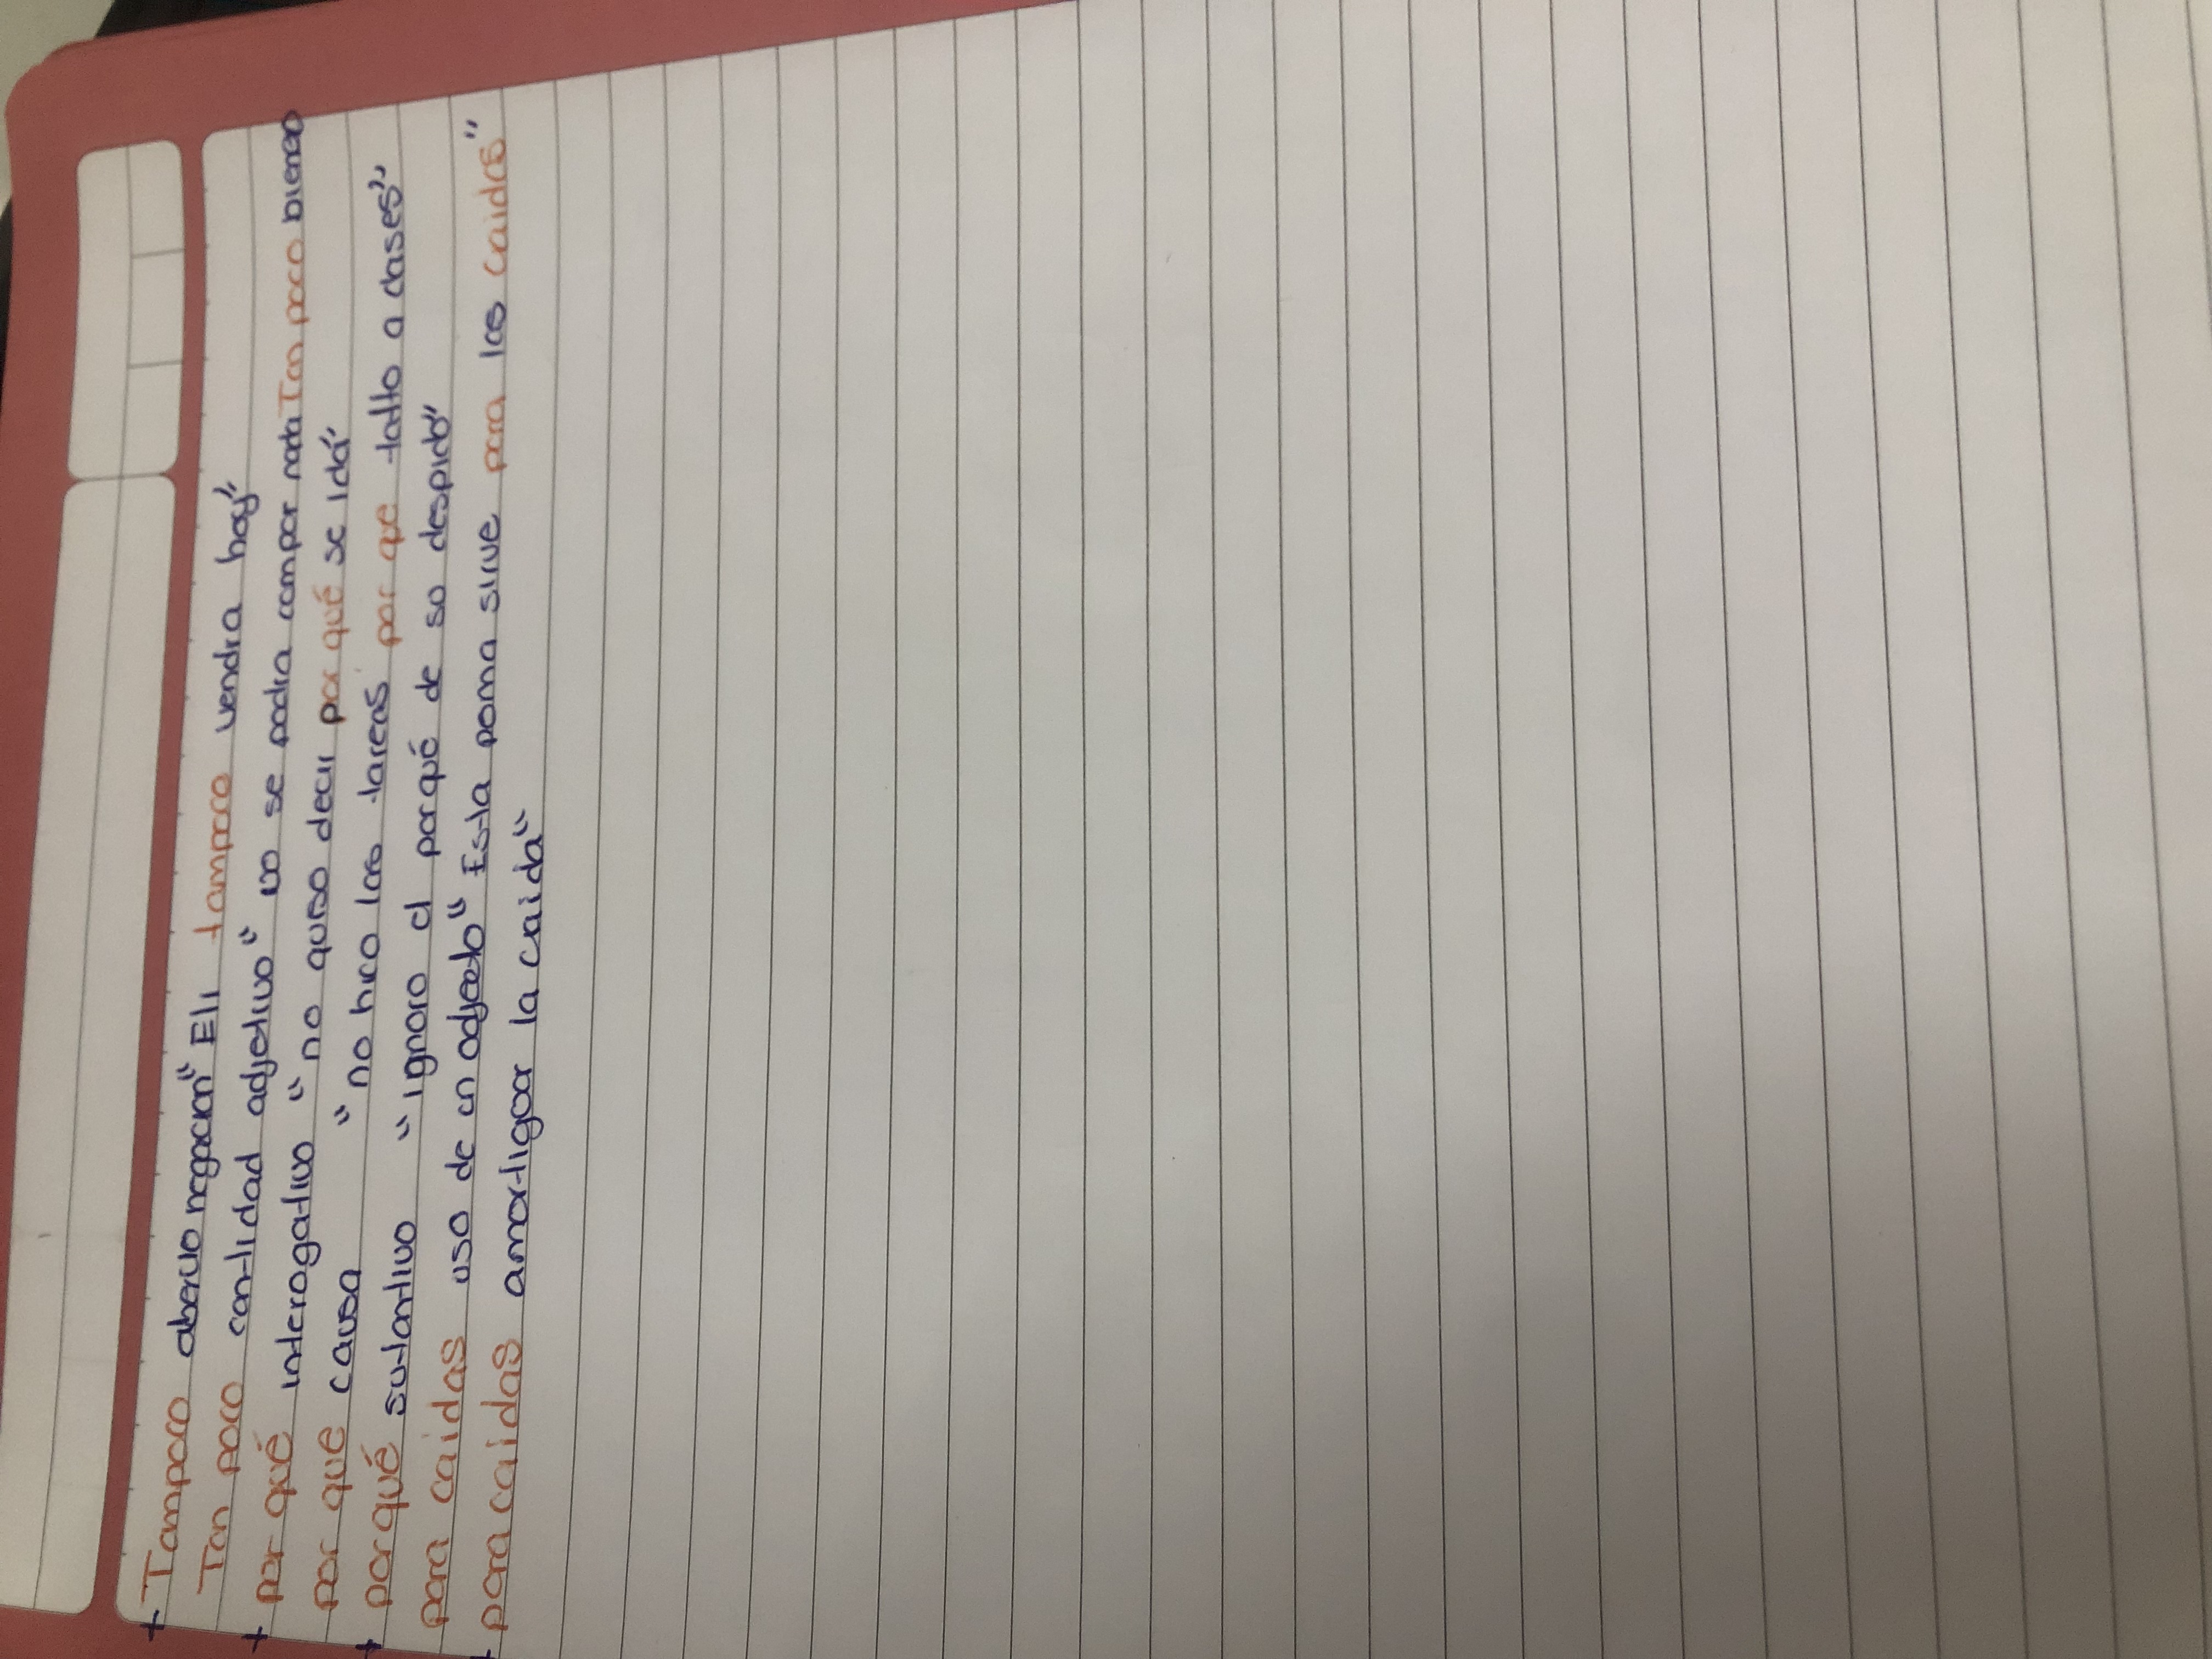 + Tampoco aberuo negacion" Eli tampoco vendra hoy"
Tan poco cantidad adjetivo" no se podra compar nada Tan poco bienao
+ por qué interogativo " no quiso decir por qué se idá"
por que causa " no hico las tareas por que falto a clases"
+ porqué sutantivo " ignoro el porqué de so despido"
para caidas uso de un odjecto" Esta poma sirve para las caidas"
+ paracaidas amortigoar la caida"